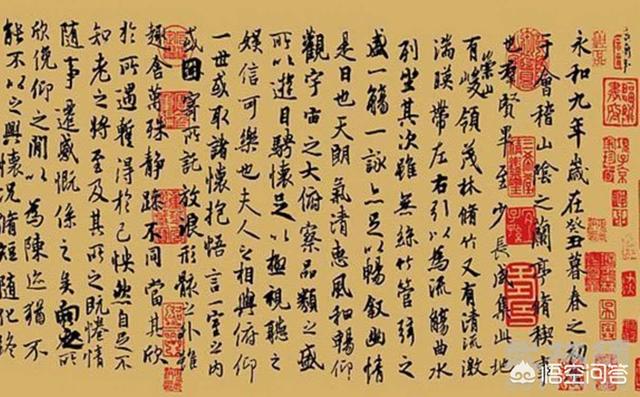 永和九年歲在癸丑暮春之初
于會稽山陰之蘭亭脩稧事
也羣賢畢至少長咸集此地
有崇山峻領茂林脩竹又有清流激
湍暎帶左右引以為流觴曲水
列坐其次雖無絲竹管弦之
盛一觴一詠亦足以暢敘幽情
是日也天朗氣清惠風和暢仰
觀宇宙之大俯察品類之盛
所以遊目騁懷足以極視聽之
娛信可樂也夫人之相與俯仰
一世或取諸懷抱悟言一室之內
或因寄所託放浪形骸之外雖
趣舍萬殊靜躁不同當其欣
於所遇蹔得於己怏然自足不
知老之將至及其所之既惓情
隨事遷感慨係之矣向之所
欣俛仰之閒以為陳迹猶不
能不以之興懷況脩短隨化終
悟空问答